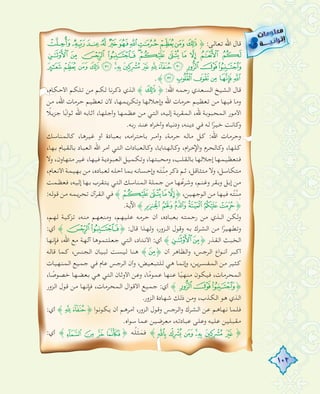 معلومات
إثرائية
قال الله تعالى: ﴿ ذَٰلِكَ وَمَن يُعَظِّمْ حُرُمَٰتِ ٱللَّهِ فَهُوَ خَيْرٌ لَّهُۥ عِندَ رَبِّهِۦ ۗ وَأُحِلَّتْ
لَكُمُ ٱلْأَنْعَٰمُ إِلَّا مَا يُتْلَىٰ عَلَيْكُمْ ۖ فَٱجْتَنِبُوا۟ ٱلرِّجْسَ مِنَ ٱلْأَوْثَٰنِ
وَٱجْتَنِبُوا۟ قَوْلَ ٱلزُّورِ ﴿٣٠﴾ حُنَفَآءَ لِلَّهِ غَيْرَ مُشْرِكِينَ بِهِۦ ﴿٣١﴾ ذَٰلِكَ وَمَن يُعَظِّمْ شَعَٰٓئِرَ
ٱللَّهِ فَإِنَّهَا مِن تَقْوَى ٱلْقُلُوبِ ﴾.
قال الشيخ السعدي رحمه الله: ﴿ ذَٰلِكَ ﴾ الذي ذكرنا لكم من تلكم الأحكام،
وما فيها من تعظيم حرمات الله وإجلالها وتكريمها، لأن تعظيم حرمات الله، من
الأمور المحبوبة لله، المقربة إليه، التي من عظمها وأجلها، أثابه الله ثوابًا جزيلًا
وكانت خيرًا له في دينه، ودنياه وأخراه عند ربه.
وحرمات الله: كل ماله حرمة، وأمر باحترامه، بعبادة أو غيرها، كالمناسك
كلها، وكالحرم والإحرام، وكالهدايا، وكالعبادات التي أمر الله العباد بالقيام بها،
فتعظيمها إجلالها بالقلب، ومحبتها، وتكميل العبودية فيها، غير متهاون، ولا
متكاسل، ولا متثاقل، ثم ذكر منّته وإحسانه بما أحله لعباده، من بهيمة الأنعام،
من إبل وبقر وغنم، وشرعها من جملة المناسك التي يتقرب بها إليه، فعظمت
منّته فيها من الوجهين، ﴿ إِلَّا مَا يُتْلَىٰ عَلَيْكُمْ ﴾ في القرآن تحريمه من قوله:
﴿ حُرِّمَتْ عَلَيْكُمُ ٱلْمَيْتَةُ وَٱلدَّمُ وَلَحْمُ ٱلْخِنزِيرِ ﴾ الآية.
ولكن الذي من رحمته بعباده، أن حرمه عليهم، ومنعهم منه، تزكية لهم،
وتطهيرًا من الشرك به وقول الزور، ولهذا قال: ﴿ فَٱجْتَنِبُوا۟ ٱلرِّجْسَ ﴾ أي:
الخبث القذر ﴿ مِنَ ٱلْأَوْثَٰنِ ﴾ أي: الأنداد، التي جعلتموها آلهة مع الله، فإنها
أكبر أنواع الرجس، والظاهر أن ﴿ مِنَ ﴾ هنا ليست لبيان الجنس، كما قاله
كثير من المفسرين، وإنما هي للتبعيض، وأن الرجس عام في جميع المنهيات
المحرمات، فيكون منهيًا عنها عمومًا، وعن الأوثان التي هي بعضها خصوصًا،
﴿ وَٱجْتَنِبُوا۟ قَوْلَ ٱلزُّورِ ﴾ أي: جميع الأقوال المحرمات، فإنها من قول الزور
الذي هو الكذب، ومن ذلك شهادة الزور.
فلما نهاهم عن الشرك والرجس وقول الزور، أمرهم أن يكونوا ﴿ حُنَفَآءَ لِلَّهِ ﴾ أي:
مقبلين عليه وعلى عبادته، معرضين عما سواه.
﴿ غَيْرَ مُشْرِكِينَ بِهِۦ ۚ وَمَن يُشْرِكْ بِٱللَّهِ ﴾ فمَثَلُه ﴿ فَكَأَنَّمَا خَرَّ مِنَ ٱلسَّمَآءِ ﴾ أي:
١٠٣